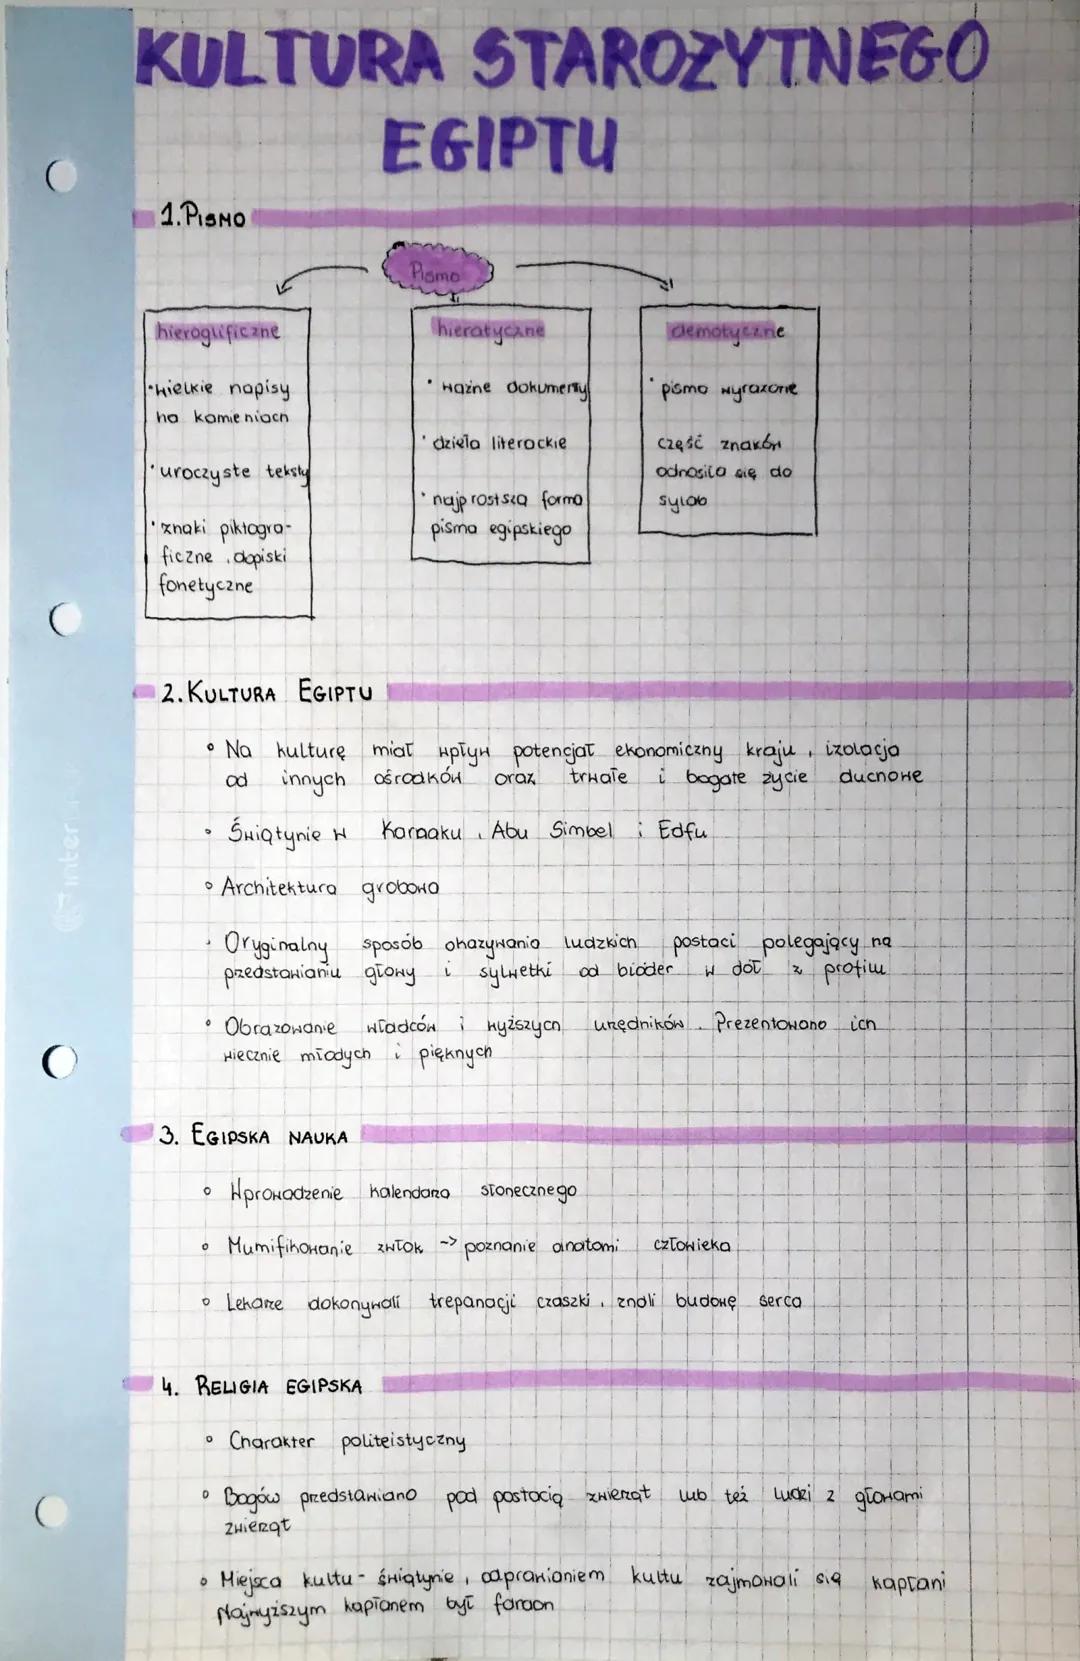 KULTURA STAROŻYTNEGO
EGIPTU
1. PISMO
Pismo
hieroglificzne
• wielkie napisy
na kamieniach
• uroczyste teksty
• znaki piktogra-
ficzne, dopiski
fonetyczne
hieratyczne
• ważne dokumenty
• dzieła literackie
• najprostsza forma
pisma egipskiego
demotyczne
• pismo wyrażone
część znaków
odnosiło się do
sylab
2. KULTURA EGIPTU
• Na kulturę miał wpływ potencjał ekonomiczny kraju, izolacja
od innych ośrodków oraz trwałe i bogate życie duchowe
• Świątynie w Karnaku, Abu Simbel i Edfu
• Architektura grobowa
• Oryginalny sposób okazywania ludzkich postaci polegający na
przedstawianiu głowy i sylwetki od bioder w dół z profilu
• Obrazowanie władców i wyższych urzędników. Prezentowano ich
wiecznie młodych i pięknych
3. EGIPSKA NAUKA
• Wprowadzenie kalendarza słonecznego
• Mumifikowanie zwłok -> poznanie anatomi człowieka
• Lekarze dokonywali trepanacji czaszki, znali budowę serca
4. RELIGIA EGIPSKA
• Charakter politeistyczny
• Bogów przedstawiano pod postacią zwierząt lub też ludzi z głowami
zwierząt
• Miejsca kultu - świątynie, odprawianiem kultu zajmowali się kapłani
Najwyższym kapłanem był faraon